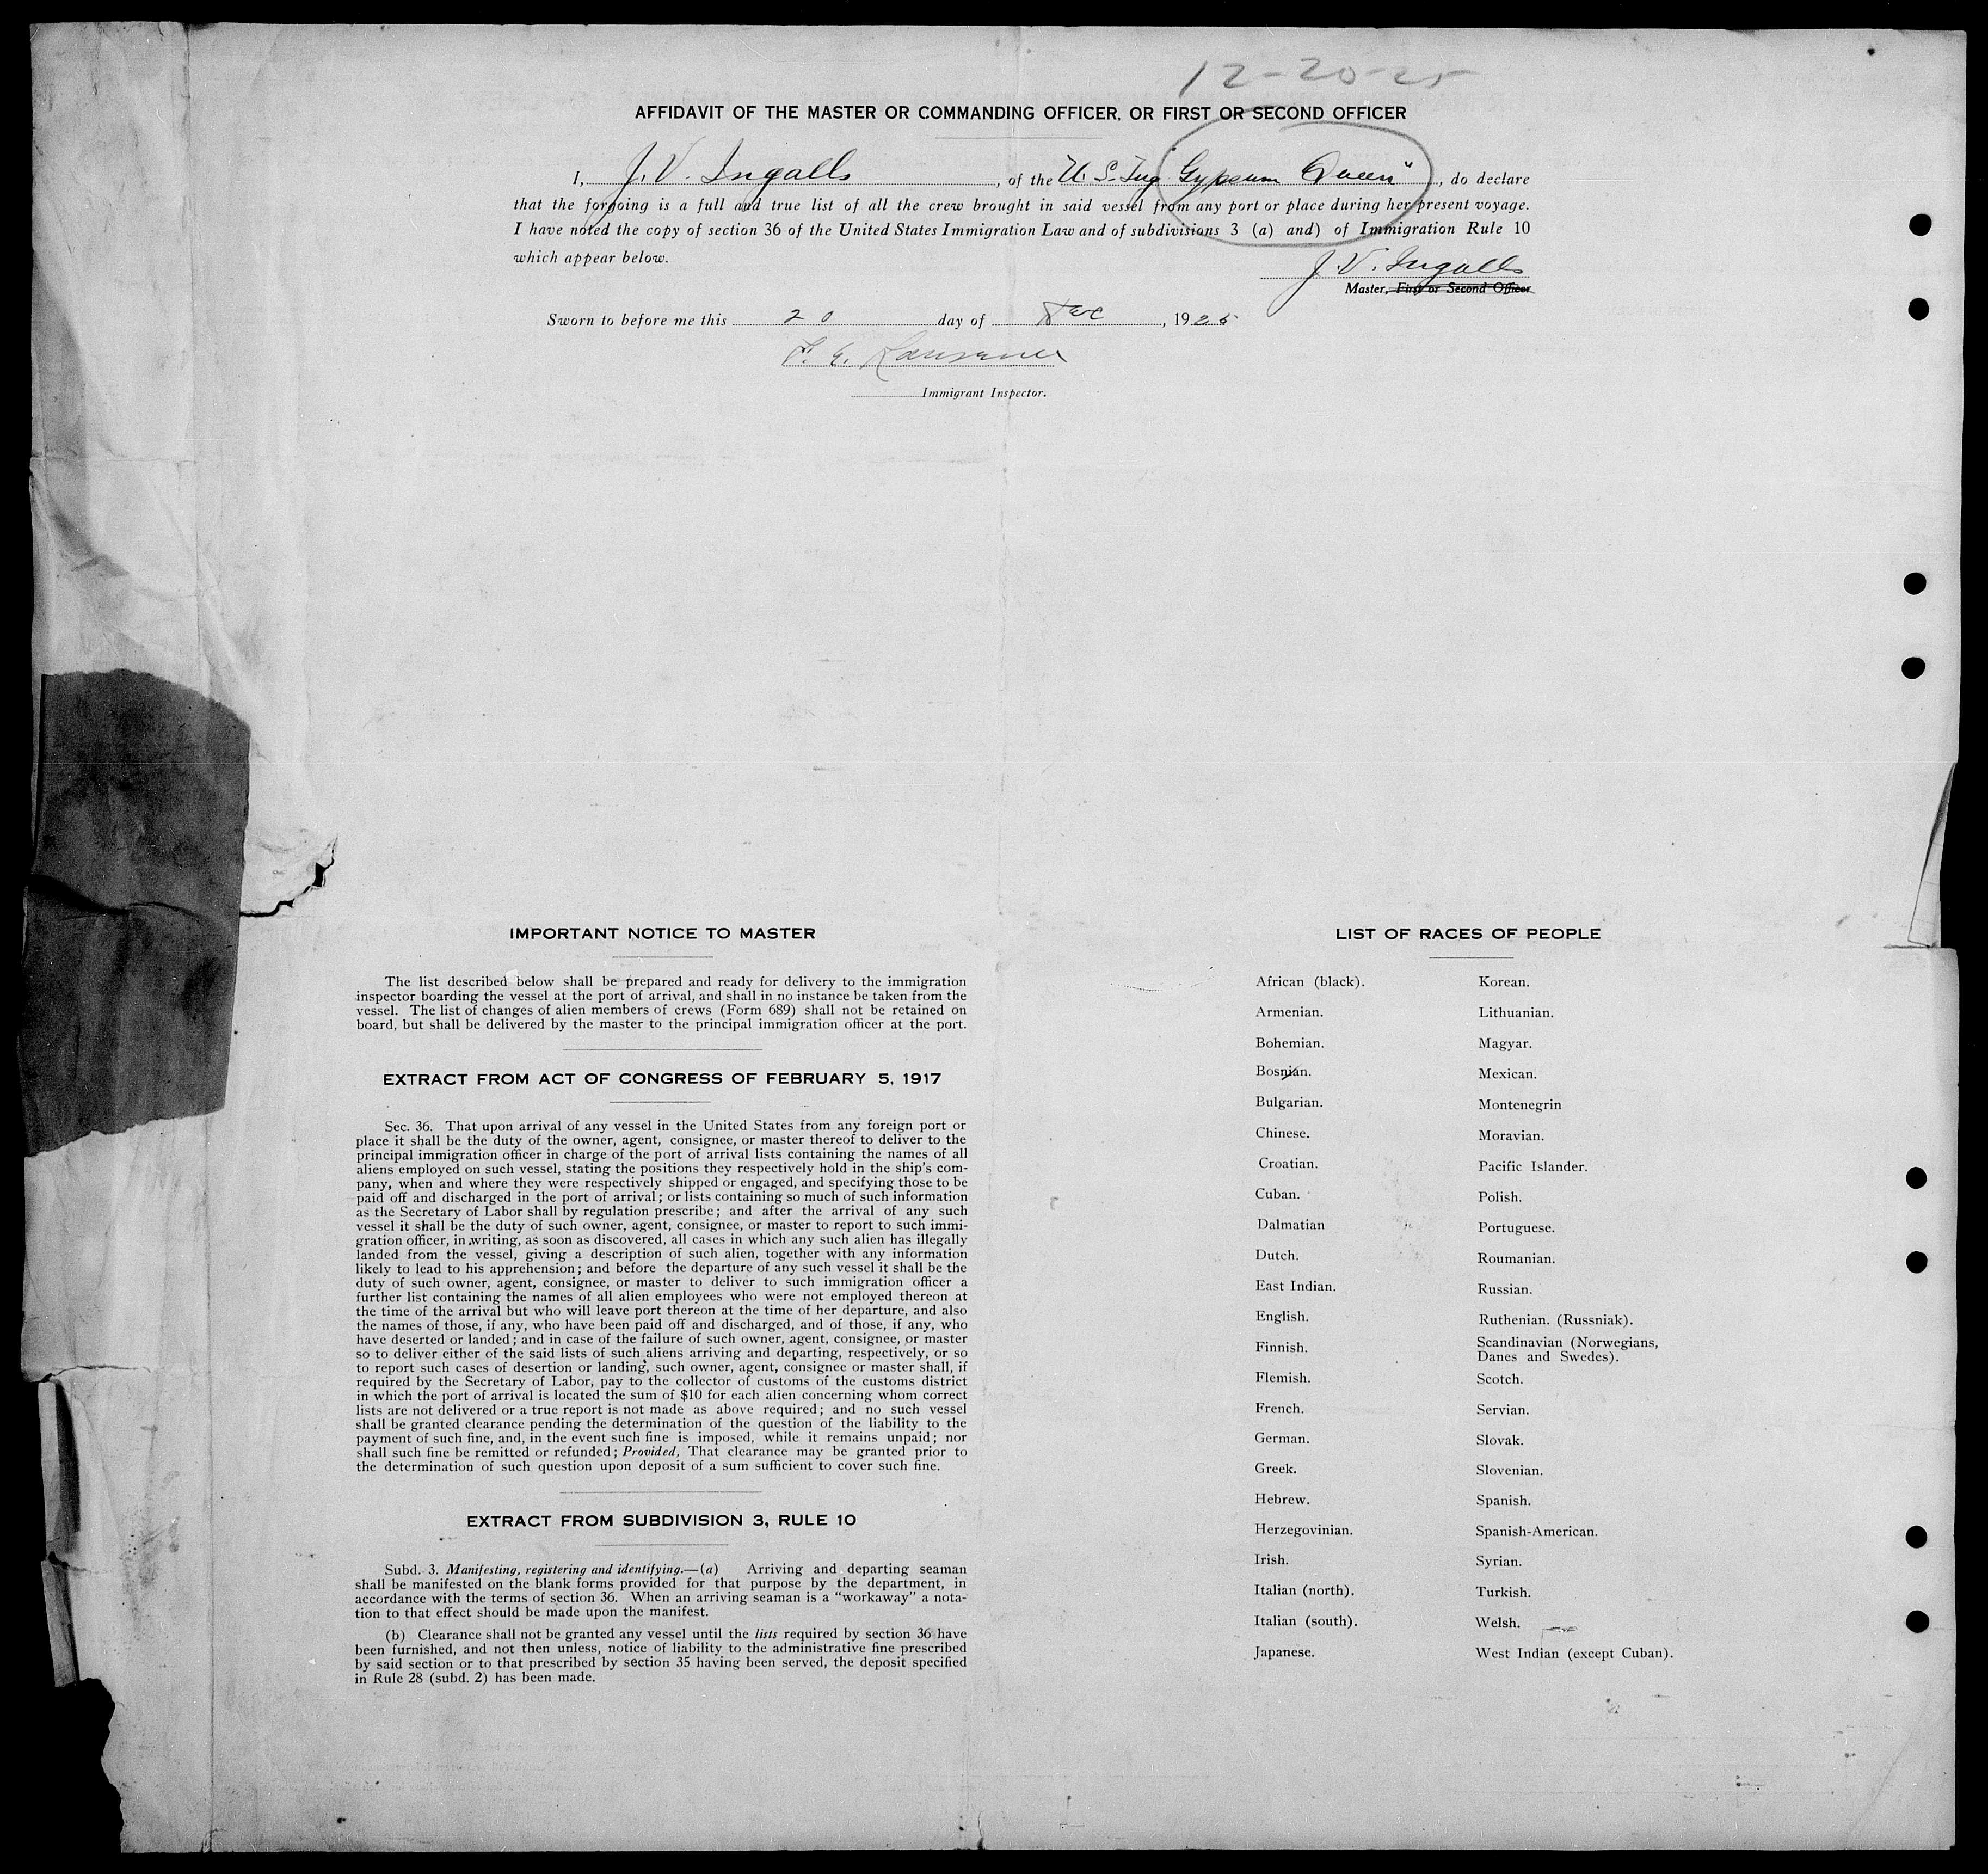 12-20-25
AFFIDAVIT OF THE MASTER OR COMMANDING OFFICER, OR FIRST OR SECOND OFFICER
I, J. V. Ingalls, of the U. S. Tug "Gypsum Queen", do declare
that the forgoing is a full and true list of all the crew brought in said vessel from any port or place during her present voyage.
I have noted the copy of section 36 of the United States Immigration Law and of subdivisions 3 (a) and) of Immigration Rule 10
which appear below.
J. V. Ingalls
Master, First or Second Officer
Sworn to before me this 20 day of Dec, 1925
F. E.
Immigrant Inspector.
IMPORTANT NOTICE TO MASTER
The list described below shall be prepared and ready for delivery to the immigration
inspector boarding the vessel at the port of arrival, and shall in no instance be taken from the
vessel. The list of changes of alien members of crews (Form 689) shall not be retained on
board, but shall be delivered by the master to the principal immigration officer at the port.
EXTRACT FROM ACT OF CONGRESS OF FEBRUARY 5, 1917
Sec. 36. That upon arrival of any vessel in the United States from any foreign port or
place it shall be the duty of the owner, agent, consignee, or master thereof to deliver to the
principal immigration officer in charge of the port of arrival lists containing the names of all
aliens employed on such vessel, stating the positions they respectively hold in the ship's com-
pany, when and where they were respectively shipped or engaged, and specifying those to be
paid off and discharged in the port of arrival; or lists containing so much of such information
as the Secretary of Labor shall by regulation prescribe; and after the arrival of any such
vessel it shall be the duty of such owner, agent, consignee, or master to report to such immi-
gration officer, in writing, as soon as discovered, all cases in which any such alien has illegally
landed from the vessel, giving a description of such alien, together with any information
likely to lead to his apprehension; and before the departure of any such vessel it shall be the
duty of such owner, agent, consignee, or master to deliver to such immigration officer a
further list containing the names of all alien employees who were not employed thereon at
the time of the arrival but who will leave port thereon at the time of her departure, and also
the names of those, if any, who have been paid off and discharged, and of those, if any, who
have deserted or landed; and in case of the failure of such owner, agent, consignee, or master
so to deliver either of the said lists of such aliens arriving and departing, respectively, or so
to report such cases of desertion or landing, such owner, agent, consignee or master shall, if
required by the Secretary of Labor, pay to the collector of customs of the customs district
in which the port of arrival is located the sum of $10 for each alien concerning whom correct
lists are not delivered or a true report is not made as above required; and no such vessel
shall be granted clearance pending the determination of the question of the liability to the
payment of such fine, and, in the event such fine is imposed, while it remains unpaid; nor
shall such fine be remitted or refunded; Provided, That clearance may be granted prior to
the determination of such question upon deposit of a sum sufficient to cover such fine.
EXTRACT FROM SUBDIVISION 3, RULE 10
Subd. 3. Manifesting, registering and identifying.—(a) Arriving and departing seaman
shall be manifested on the blank forms provided for that purpose by the department, in
accordance with the terms of section 36. When an arriving seaman is a "workaway" a nota-
tion to that effect should be made upon the manifest.
(b) Clearance shall not be granted any vessel until the lists required by section 36 have
been furnished, and not then unless, notice of liability to the administrative fine prescribed
by said section or to that prescribed by section 35 having been served, the deposit specified
in Rule 28 (subd. 2) has been made.
LIST OF RACES OF PEOPLE
African (black).
Armenian.
Bohemian.
Bosnian.
Bulgarian.
Chinese.
Croatian.
Cuban.
Dalmatian
Dutch.
East Indian.
English.
Finnish.
Flemish.
French.
German.
Greek.
Hebrew.
Herzegovinian.
Irish.
Italian (north).
Italian (south).
Japanese.
Korean.
Lithuanian.
Magyar.
Mexican.
Montenegrin
Moravian.
Pacific Islander.
Polish.
Portuguese.
Roumanian.
Russian.
Ruthenian. (Russniak).
Scandinavian (Norwegians,
Danes and Swedes).
Scotch.
Servian.
Slovak.
Slovenian.
Spanish.
Spanish-American.
Syrian.
Turkish.
Welsh.
West Indian (except Cuban).